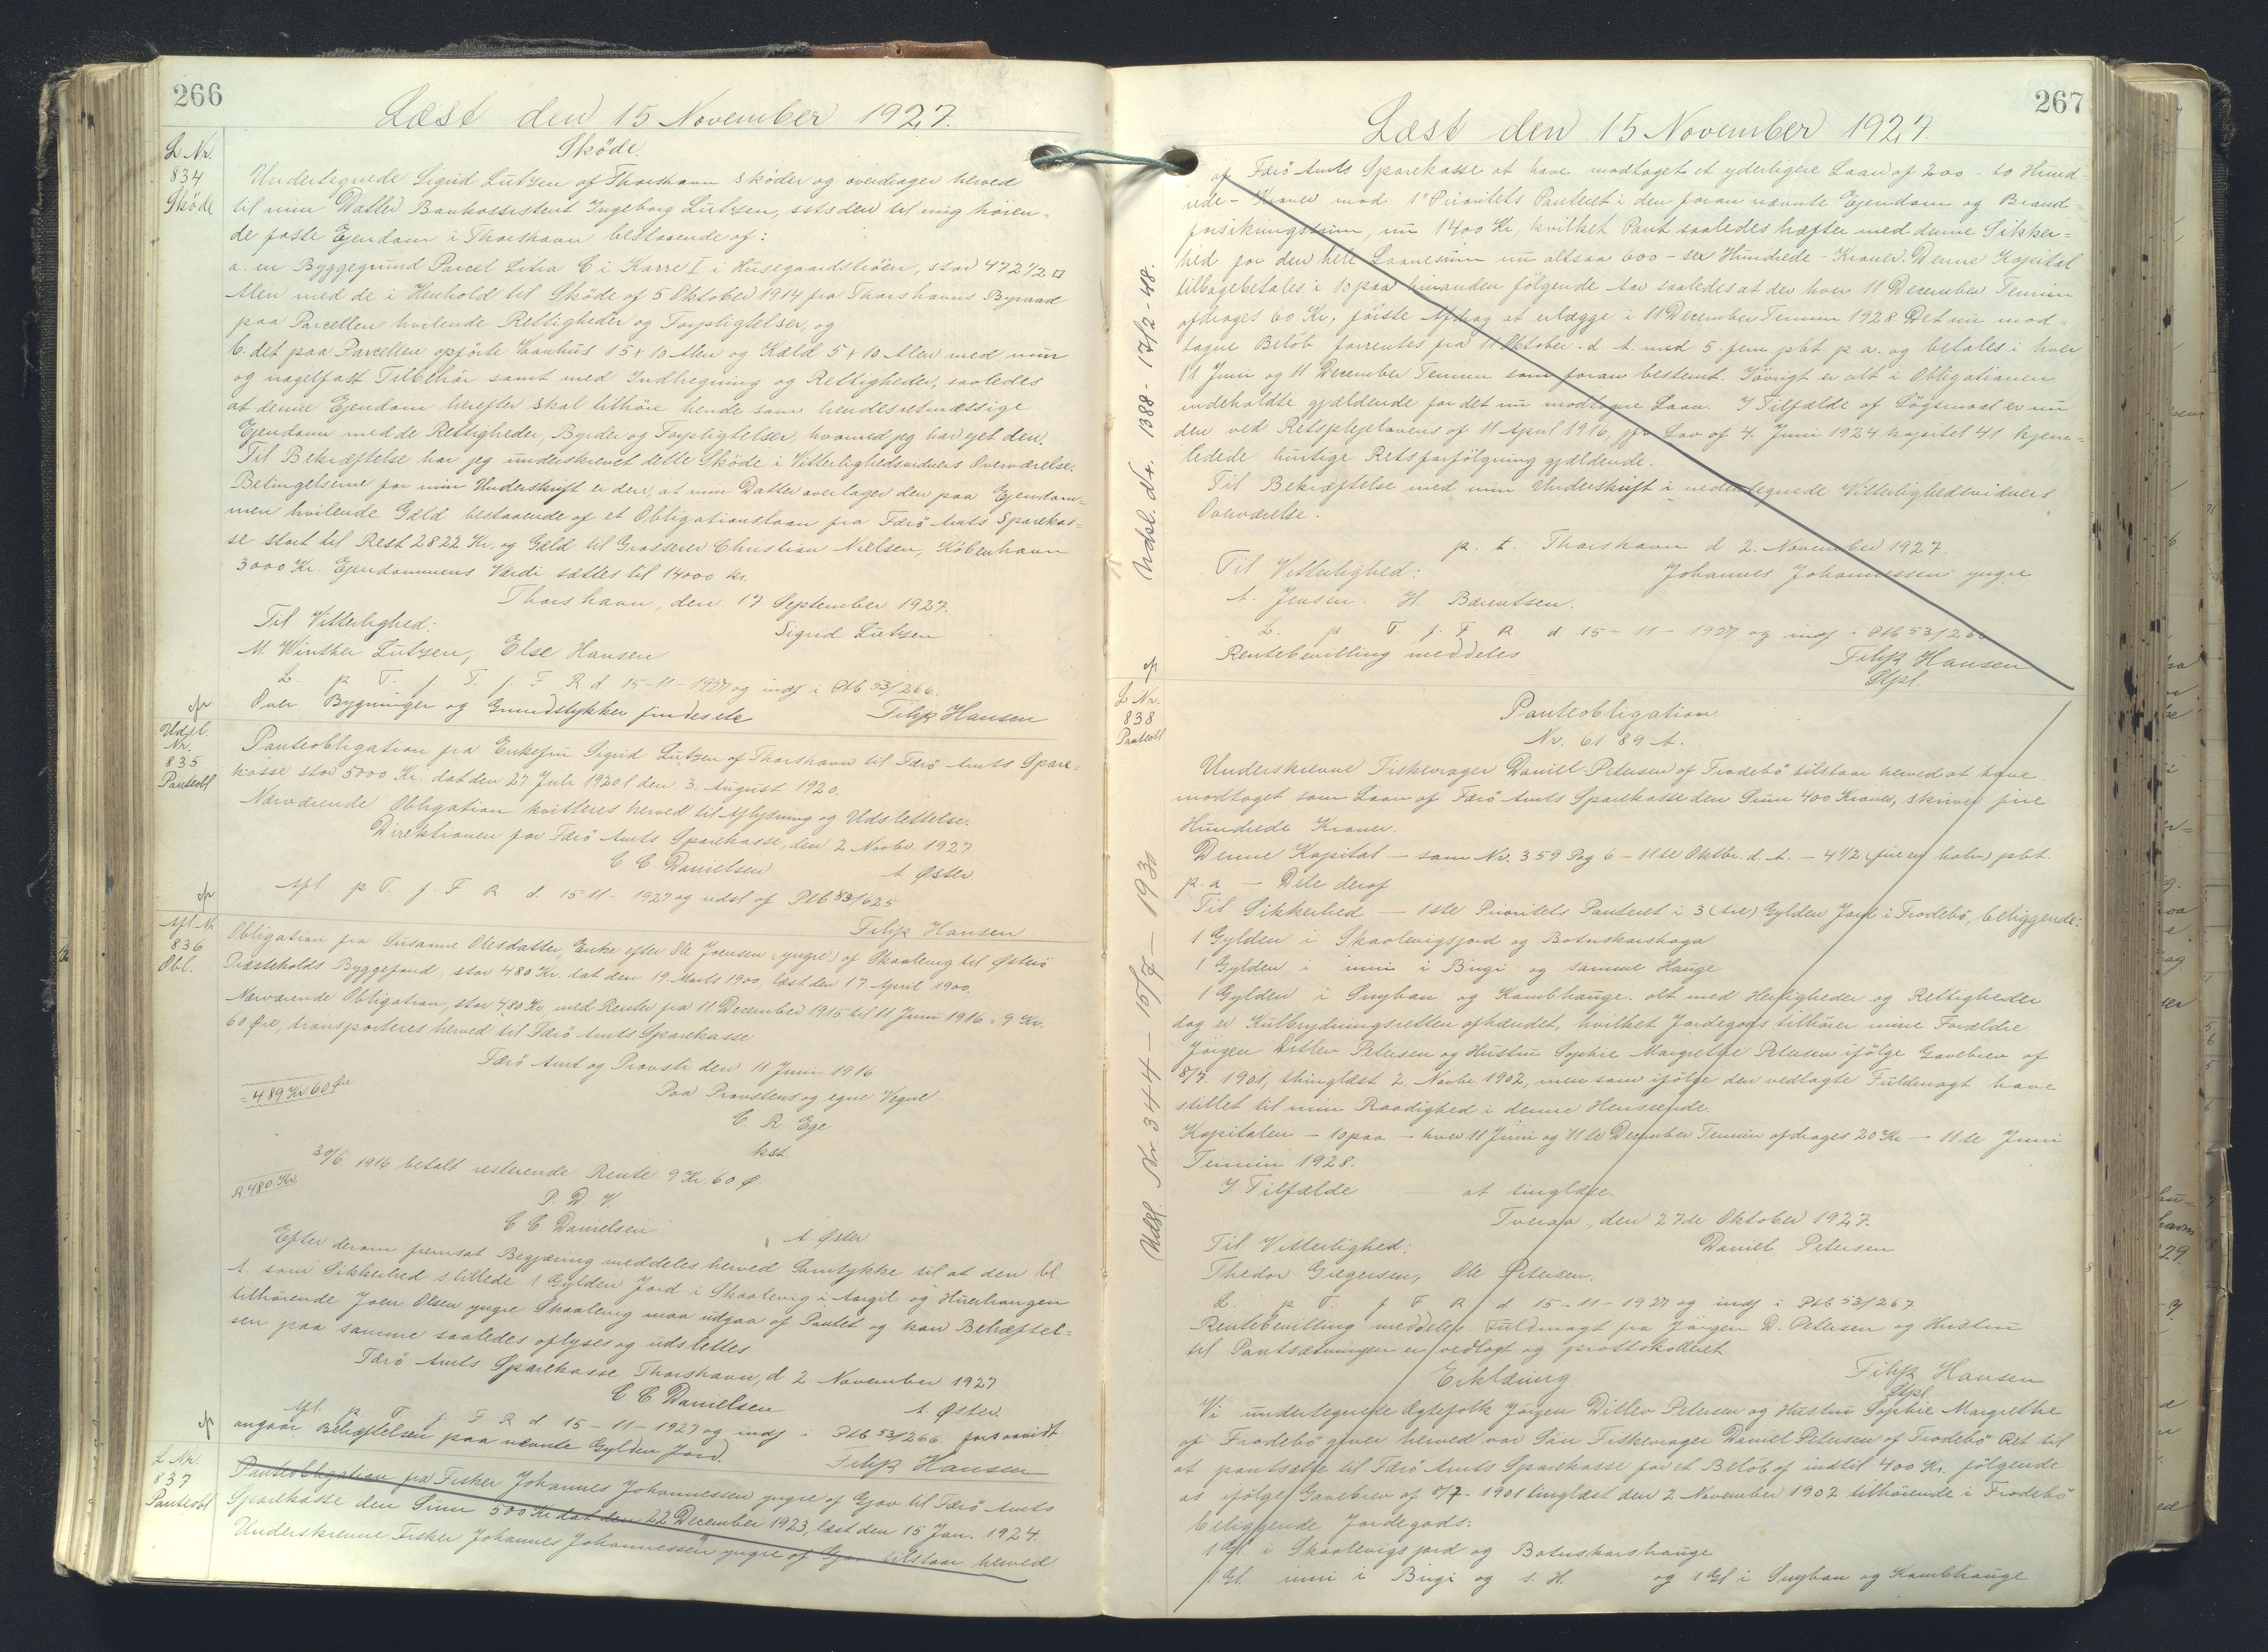 266
Læst den 15 November 1927.
L Nr.
834
Sköde
Sköde.
Undertegnede Sigrid Lützen af Thorshavn sköder og overdrager herved
til min Datter Bankassistent Ingeborg Lützen, sstsden til mig hören=
de faste Ejendom i Thorshavn bestaaende af:
a. en Byggegrund Parcel Litra C i Karre I i Husegaardströen, stor 472 1/2 □
Alen med de i Henhold til Sköde af 5 Oktober 1914 fra Thorshavns Byraad
paa Parcellen hvilende Rettigheder og Forpligtelser, og
b. det paa Parcellen opförte Vaanhus 15 x 10 Alen og Kæld 5 x 10 Alen med mur
og nagelfast Tilbehör samt med Indhegning og Rettigheder, saaledes
at denne Ejendom herefter skal tilhöre hende som hendes retmæssige
Ejendom med de Rettigheder, Byrder og Forpligtelser, hvormed jeg har ejet den.
Til Bekræftelse har jeg underskrevet dette Sköde i Vitterlighedsvidners Overværelse.
Betingelserne for min Underskrift er den, at min Datter overtager den paa Ejendom=
men hvilende Gæld bestaaende af et Obligationslaan fra Færö Amts Sparekas=
se stort til Rest 2822 Kr. og Gæld til Grosserer Christian Nielsen, Köbenhavn
3000 Kr. Ejendommens Værdi sættes til 14000 kr.
Thorshavn, den 17 September 1927.
Til Vitterlighed:
Sigrid Lützen
M. Winther Lützen, Else Hansen
L. p T. f. F. R d 15-11-1927 og indf i Ptb 53/266.
Over Bygninger og Grundstykker findes ete
Filip Hansen
Udsl.
Nr.
835
Panteobl
Panteobligation fra Enkefru Sigrid Lützen af Thorshavn til Færö Amts Spare=
kasse stor 5000 Kr. dat den 27 Juli 1920 l den 3. August 1920.
Nærværende Obligation kvitteres herved til Aflysning og Udslettelse.
Direktionen for Færö Amts Sparekasse, den 2 Novbr. 1927
C C Danielsen A Øster
Afl. p T. f. F R d. 15-11-1927 og udsl af Ptb 33/625
Filip Hansen
Afl. Nr
836
Obl.
Obligation fra Susanne Olesdatter, Enke efter Ole Joensen (yngre) af Skaalevig til Østerö
Præsteholds Byggefond, stor 480 Kr. dat den 19. Marts 1900, læst den 17. April 1900.
Nærværende Obligation, stor 480 Kr. med Renter fra 11 December 1915 til 11 Juni 1916 = 9 Kr.
60 Øre, transporteres herved til Færö Amts Sparekasse
Færö Amt og Provsti den 11 Juni 1916
= 489 Kr 60 Øre
Paa Provstens og egne Vegne
C. R. Ege
kst.
30/6. 1916 betalt resterende Rente 9 Kr. 60 Ø.
R 480 Kr.
P. D. V.
C C Danielsen A Øster
Efter derom fremsat Begjæring meddeles herved Samtykke til at den bl
A. som Sikkerhed stillede 1 Gylden Jord i Skaalevig i Aargil og Huerhaugen
tilhörende Joen Olsen yngre Skaalevig maa udgaa af Pantet og kan Behæftel=
sen paa samme saaledes aflyses og udslettes
Færö Amts Sparekasse, Thorshavn, d 2 November 1927
C C Danielsen A. Øster.
Afl. p T f F R d 15-11-1927 og indf i Ptb 53/266 forsaavidt
angaar Behæftelsen paa nævnte Gylden Jord.
Filip Hansen
L Nr.
837
Panteobl
Panteobligation fra Fisker Johannes Johannessen yngre af Gjov til Færö Amts
Sparekasse den Sum 500 Kr dat den 22 December 1923, læst den 15 Jan. 1924.
Underskrevne Fisker Johannes Johannessen yngre af Gjov tilstaar herved
267
Læst den 15 November 1927
af Færö Amts Sparekasse at have modtaget et yderligere Laan af 200 - to Hund=
rede - Kroner mod 1' Prioritets Panteret i den foran nævnte Ejendom og Brand=
forsikringssum, nu 1400 Kr, hvilket Pant saaledes hæfter med denne Sikker=
hed for den hele Laanesum nu altsaa 600 - sex Hundrede - Kroner. Denne Kapital
tilbagebetales i 10 paa hinanden fölgende Aar saaledes at der hver 11 December Termin
afdrages 60 Kr, förste Afdrag at erlægge i 11 December Termin 1928 Det nu mod=
tagne Belöb forrentes fra 11 Oktober d. A. med 5 - fem pCt p a. og betales i hver
11 Juni og 11 December Termin som foran bestemt. Iövrigt er alt i Obligationen
indeholdte gjældende for det nu modtagne Laan. I Tilfælde af Sögsmaal er nu
den ved Retsplejelovens af 11 April 1916, jfr. Lov af 4. Juni 1924 kapitel 41 hjem=
ledede hurtige Retsforfölgning gjældende.
Til Bekræftelse med min Underskrift i nedentegnede Vitterlighedsvidners
Overværelse.
p. t. Thorshavn d 2. November 1927.
Til Vitterlighed:
Johannes Johannessen yngre
A. Jensen. H. Bærentsen.
L. p T. f. F R d 15-11-1927 og indf i Ptb 53/266
Rentebevilling meddeles
Filip Hansen
Stpl.
Udsl. Nr. 1388 - 17/2 - 48.
L Nr.
838
Panteobl
Panteobligation
Nr. 6189 A.
Underskrevne Fiskevrager Daniel Petersen af Trodebö tilstaar herved at have
modtaget som Laan af Færö Amts Sparekasse den Sum 400 Kroner, skriver fire
Hundrede Kroner.
Denne Kapital — som Nr. 359 Pag 6 — 11te Oktbr. d. A. — 4 1/2 (fire og halv) pCt.
p. a — Dele deraf.
Til Sikkerhed — 1ste Prioritets Panteret i 3 (tre) Gylden Jord i Trodebö, beliggende:
1 Gylden i Skaalevigsjord og Botnskarshaga
1 Gylden i inni i Bugi og samme Hauge
1 Gylden i Snyban og Kambhauge. alt med Herligheder og Rettigheder
dog er Kulbrydningsretten afhændet, hvilket Jordegods tilhörer mine Forældre
Jörgen Ditlev Petersen og Hustru Sophie Margrethe Petersen ifölge Gavebrev af
8/7. 1901, thinglæst 2. Novbr. 1902, men som ifölge den vedlagte Fuldmagt have
stillet til min Raadighed i denne Henseende.
Kapitalen — 10 paa — hver 11 Juni og 11te December Termin afdrages 20 Kr — 11te Juni
Termin 1928.
I Tilfælde — at tinglæse.
Tveraa, den 27de Oktober 1927.
Til Vitterlighed:
Daniel Petersen
Thedor Gregersen, Ole Petersen.
L. p T. f F R d 15-11-1927 og indf i Ptb 53/267
Rentebevilling meddeles. Fuldmagt fra Jörgen D. Petersen og Hustru
til Pantsætningen er vedlagt og prottokolleret
Filip Hansen
Stpl.
Erklæring
Vi undertegnede Ægtefolk Jörgen Ditlev Petersen og Hustru Sophie Margrethe
af Frodebö giver herved vor Sön Fiskevrager Daniel Petersen af Trodebö Ret til
at pantsætte til Færö Amts Sparekasse for et Belöb af indtil 400 Kr. fölgende
os ifölge Gavebrev af 8/7 - 1901 tinglæst den 2 November 1902 tilhörende i Frodebö
beliggende Jordegods:
1 Gl. i Skaalevigs jord og Botnskarshauge
1 Gl. inni i Bugi og s. H. og 1 Gl i Snyban og Kambhauge
Udsl. Nr 344 — 16/7 — 1930